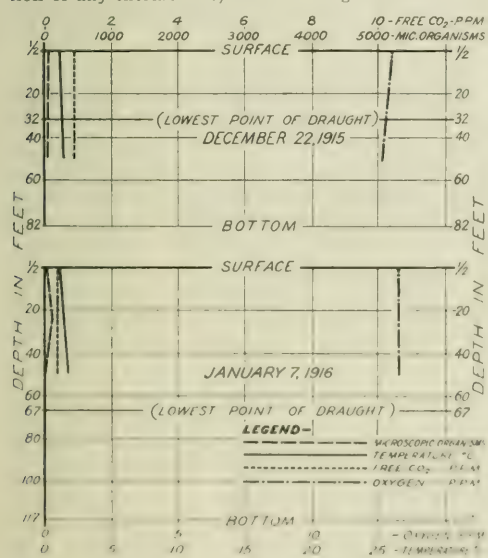 0 2 4 6 8 10 - FREE CO₂ - P.P.M
0 1000 2000 3000 4000 5000 - MIC. ORGANISMS
½ SURFACE ½
20 20
32 (LOWEST POINT OF DRAUGHT) 32
40 DECEMBER 22, 1915 40
60 60
82 BOTTOM 82
DEPTH IN FEET
DEPTH IN FEET
½ SURFACE ½
20 20
40 40
JANUARY 7, 1916
60 60
67 (LOWEST POINT OF DRAUGHT) 67
LEGEND-
80 MICROSCOPIC ORGANISMS
TEMPERATURE °C
FREE CO₂ P.P.M
100 OXYGEN P.P.M
117 BOTTOM
0 5 10 - OXYGEN P.P.M
0 5 10 15 20 25 - TEMPERATURE